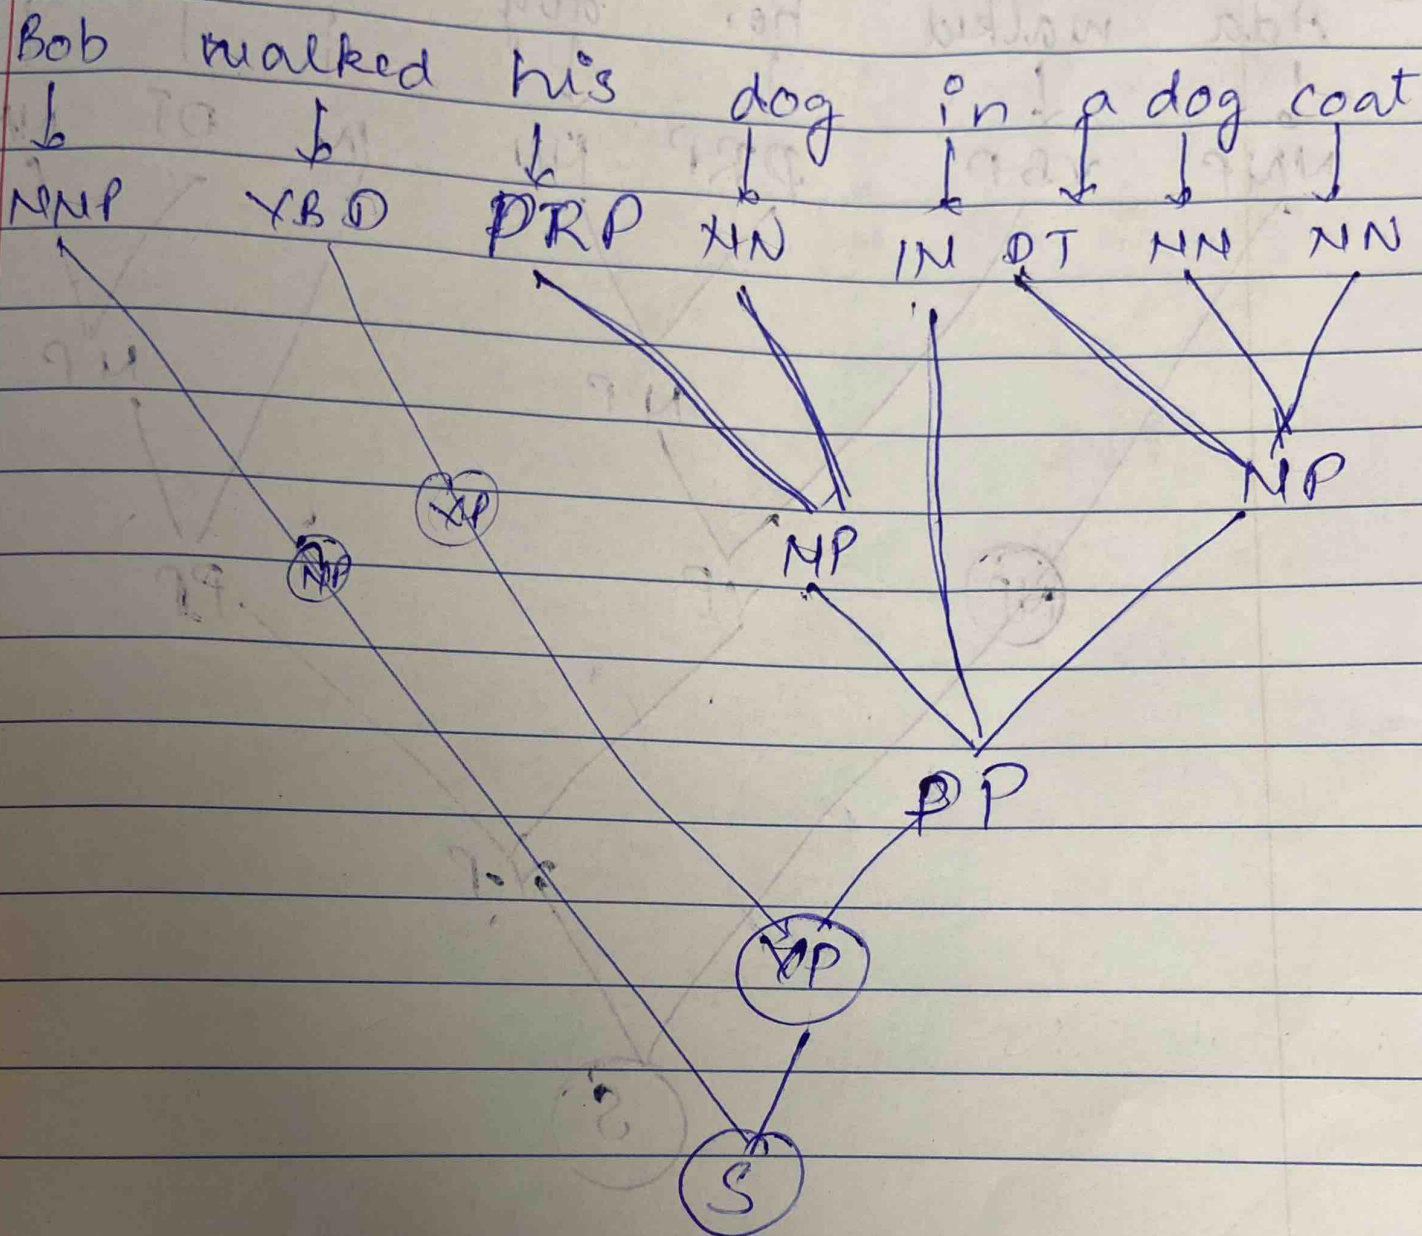 Bob walked his dog in a dog coat
NNP VBD PRP NN IN DT NN NN
NP
VP
NP
NP
PP
VP
S